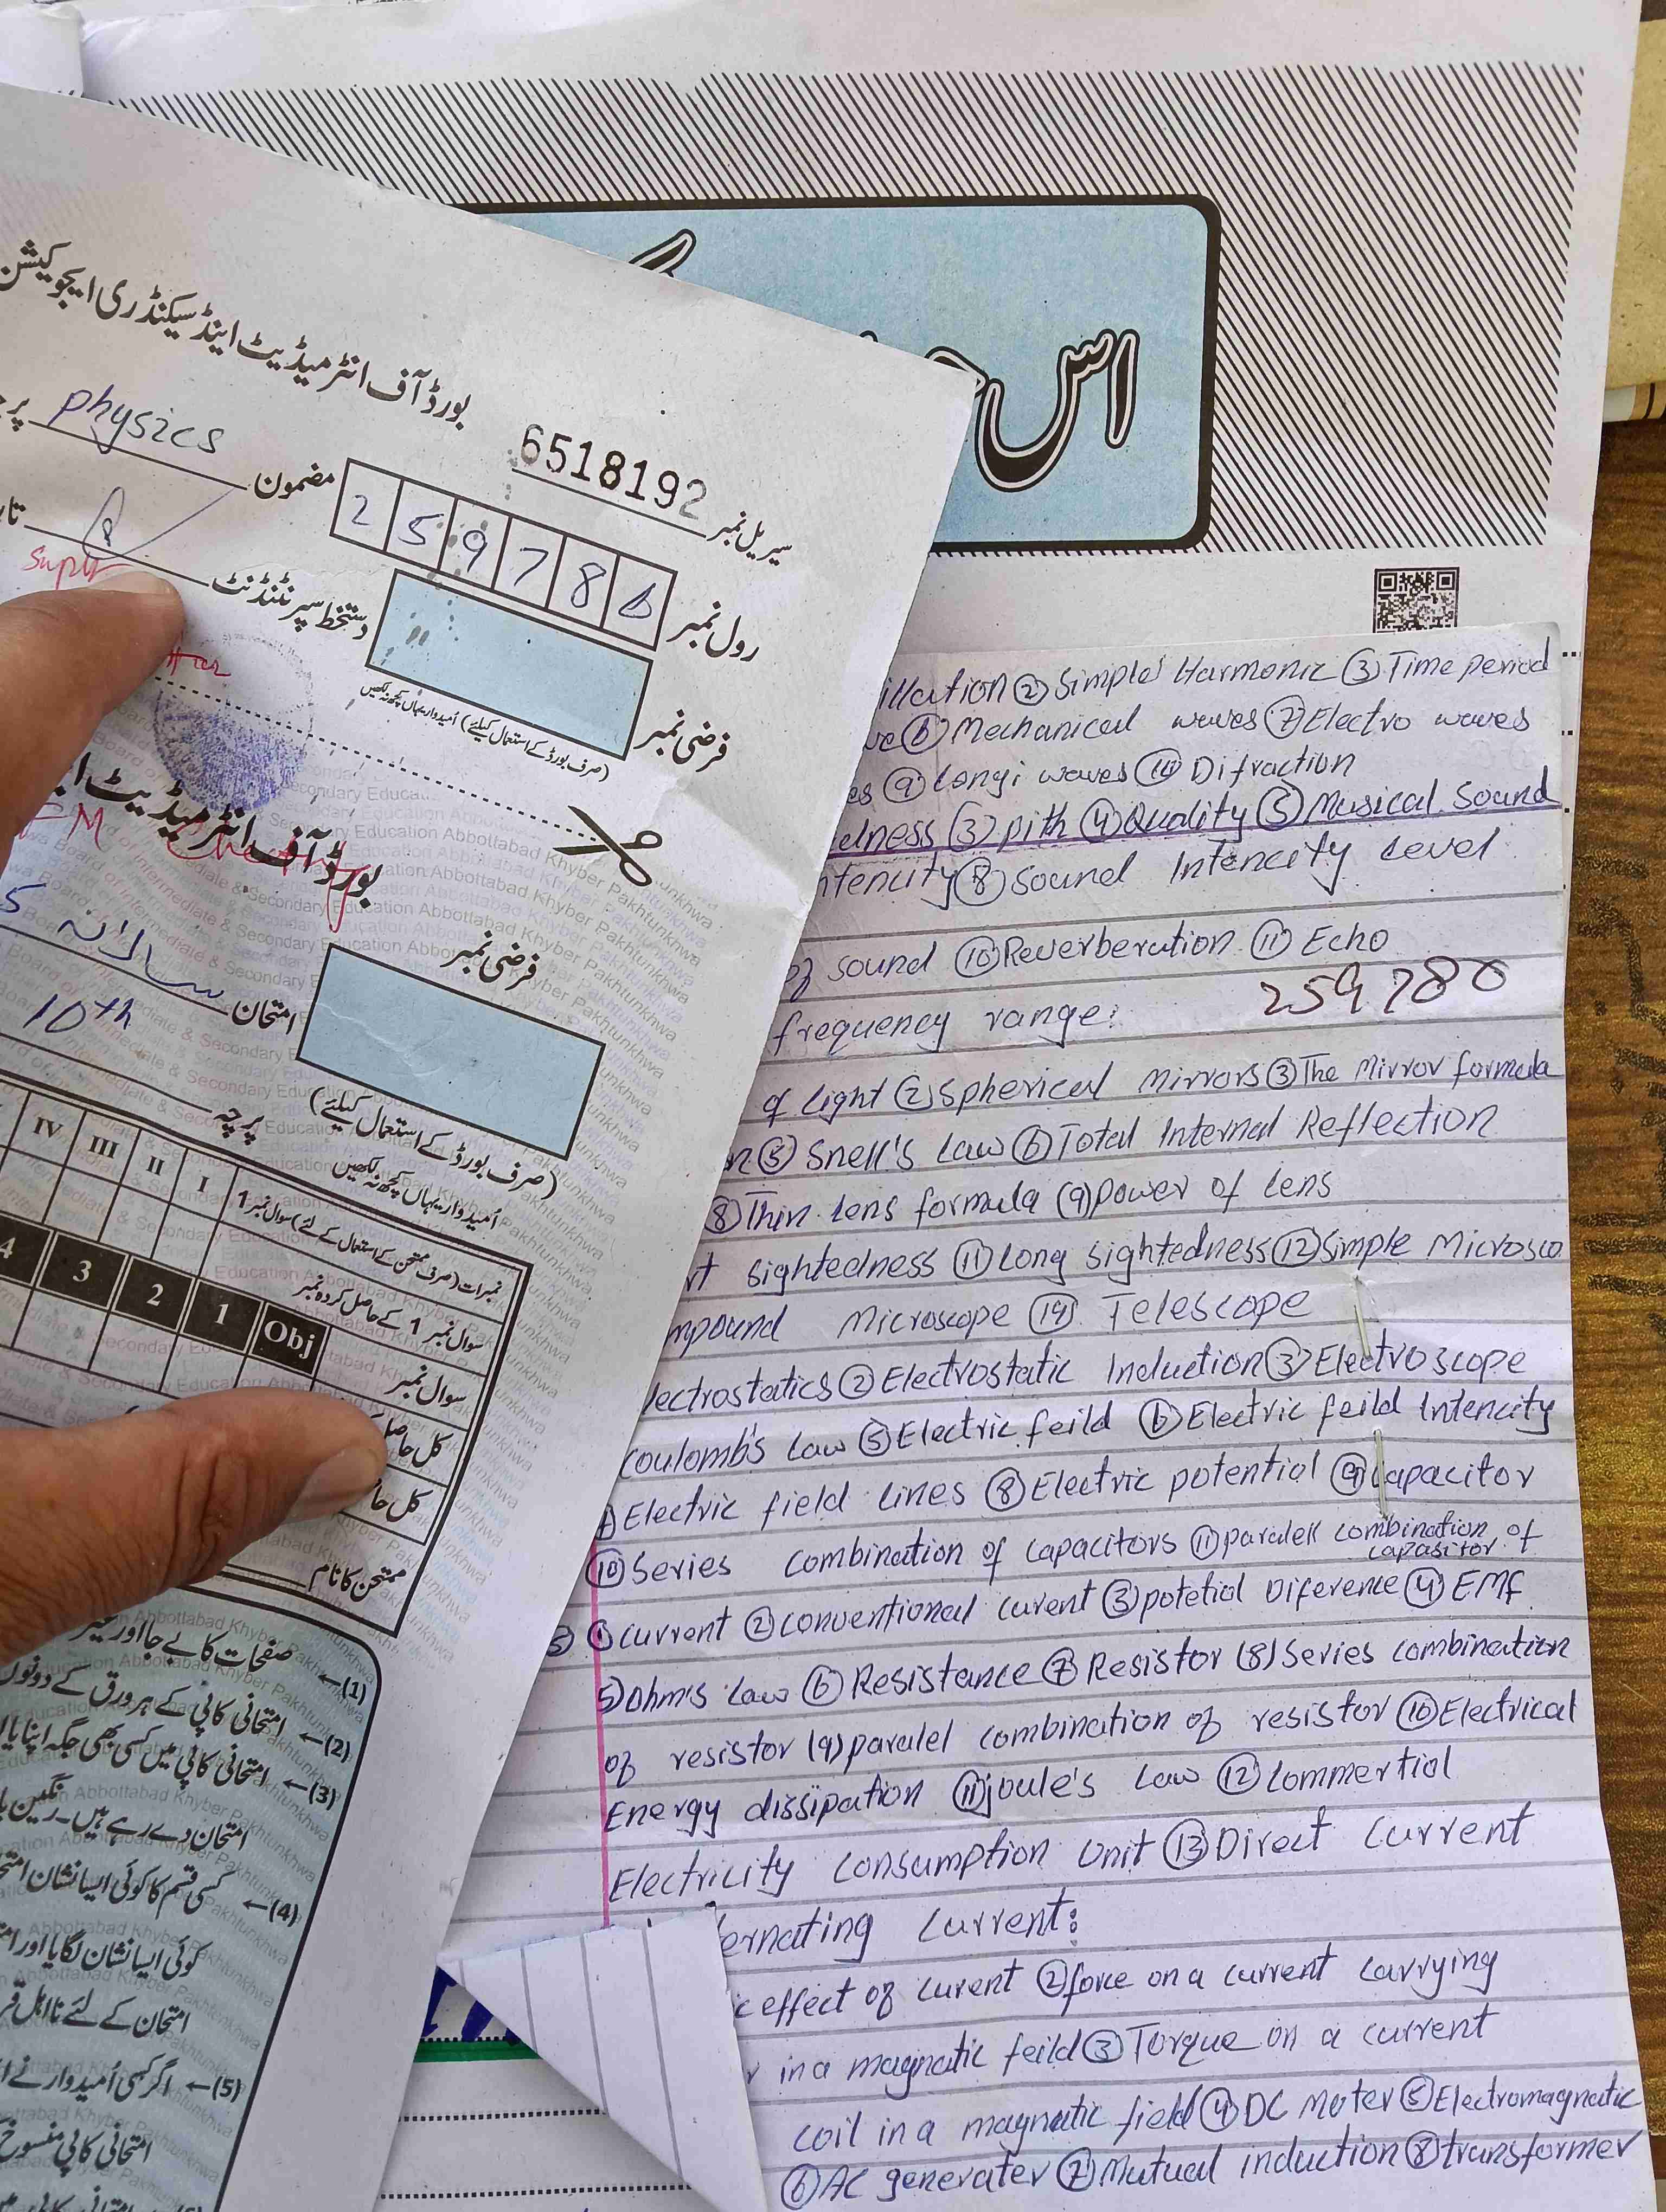 بورڈ آف انٹرمیڈیٹ اینڈ سیکنڈری ایجوکیشن
سیریل نمبر 6518192
مضمون physics
رول نمبر 2 5 9 7 8 0
دستخط سپرنٹنڈنٹ
Supt
فرضی نمبر
(صرف بورڈ کے استعمال کیلئے) امیدوار یہاں کچھ نہ لکھیں
بورڈ آف انٹرمیڈیٹ
فرضی نمبر
امتحان سالانہ
پرچہ 10th
(صرف بورڈ کے استعمال کیلئے)
امیدوار یہاں کچھ نہ لکھیں
نمبرات (صرف ممتحن کے استعمال کے لئے) سوال نمبر 1
I II III IV
سوال نمبر 1 کے حاصل کردہ نمبر
سوال نمبر Obj 1 2 3 4
کل
کل
ممتحن کا نام
(1)← صفحات کا بے جا اور غیر
(2)← امتحانی کاپی کے ہر ورق کے دونوں
(3)← امتحانی کاپی میں کسی بھی جگہ اپنا یا
امتحان دے رہے ہیں۔ رنگین
(4)← کسی قسم کا کوئی ایسا نشان
کوئی ایسا نشان لگایا اور
امتحان کے لئے نااہل
(5)← اگر کسی امیدوار نے
امتحانی کاپی منسوخ
اس
illation ② Simple Harmonic ③ Time period
ve ⑥ Mechanical waves ⑦ Electro waves
es ⑨ Longi waves ⑩ Difraction
dness (3) pith ④ Quality ⑤ Musical Sound
ntencity ⑧ Sound Intencity Level
of sound ⑩ Reverberation ⑪ Echo
frequency range:
259780
of Light ② Spherical Mirrors ③ The Mirror formula
n ⑤ Snell's Law ⑥ Total Internal Reflection
⑧ Thin Lens formula (9) power of Lens
rt Sightedness ⑪ Long Sightedness ⑫ Simple Microsco
mpound Microscope ⑭ Telescope
lectrostatics ② Electrostatic Induction ③ Electroscope
Coulomb's Law ⑤ Electric feild ⑥ Electric feild Intencity
⑦ Electric field lines ⑧ Electric potential ⑨ Capacitor
⑩ Series combination of capacitors ⑪ paralell combination of capasitor
⑤ ① Current ② Conventional Curent ③ potetial Diference ④ EMF
5) Ohm's Law ⑥ Resistance ⑦ Resistor (8) Series combination
of resistor (9) paralel combination of resistor ⑩ Electrical
Energy dissipation ⑪ joule's Law ⑫ Commertial
Electricity Consumption Unit ⑬ Direct Current
ernating Current:
c effect of Curent ② force on a current Carrying
r in a magnatic feild ③ Torque on a current
coil in a magnatic field ④ DC Moter ⑤ Electromagnatic
⑥ AC generater ⑦ Mutual induction ⑧ transformer